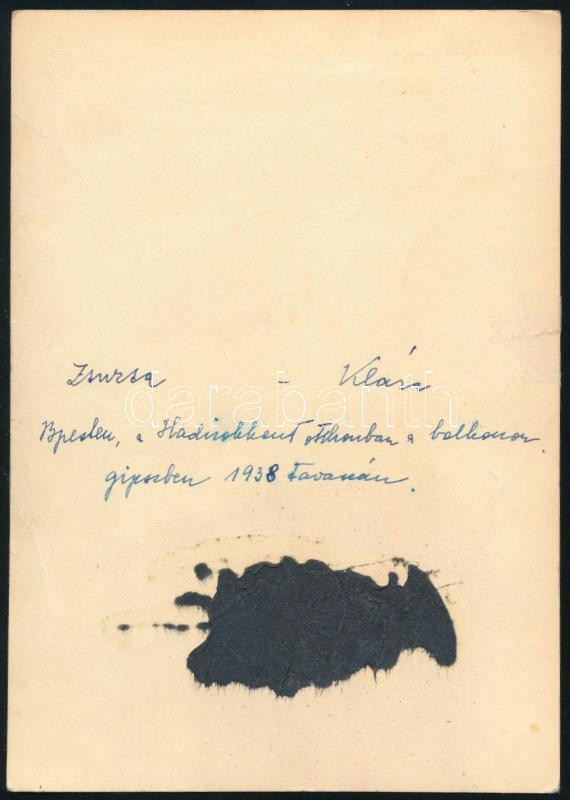 Zsuzsa - Klára
Bpesten, a Hadirokkant otthonban a balkonon
gipszben 1938 tavaszán.
darabanth